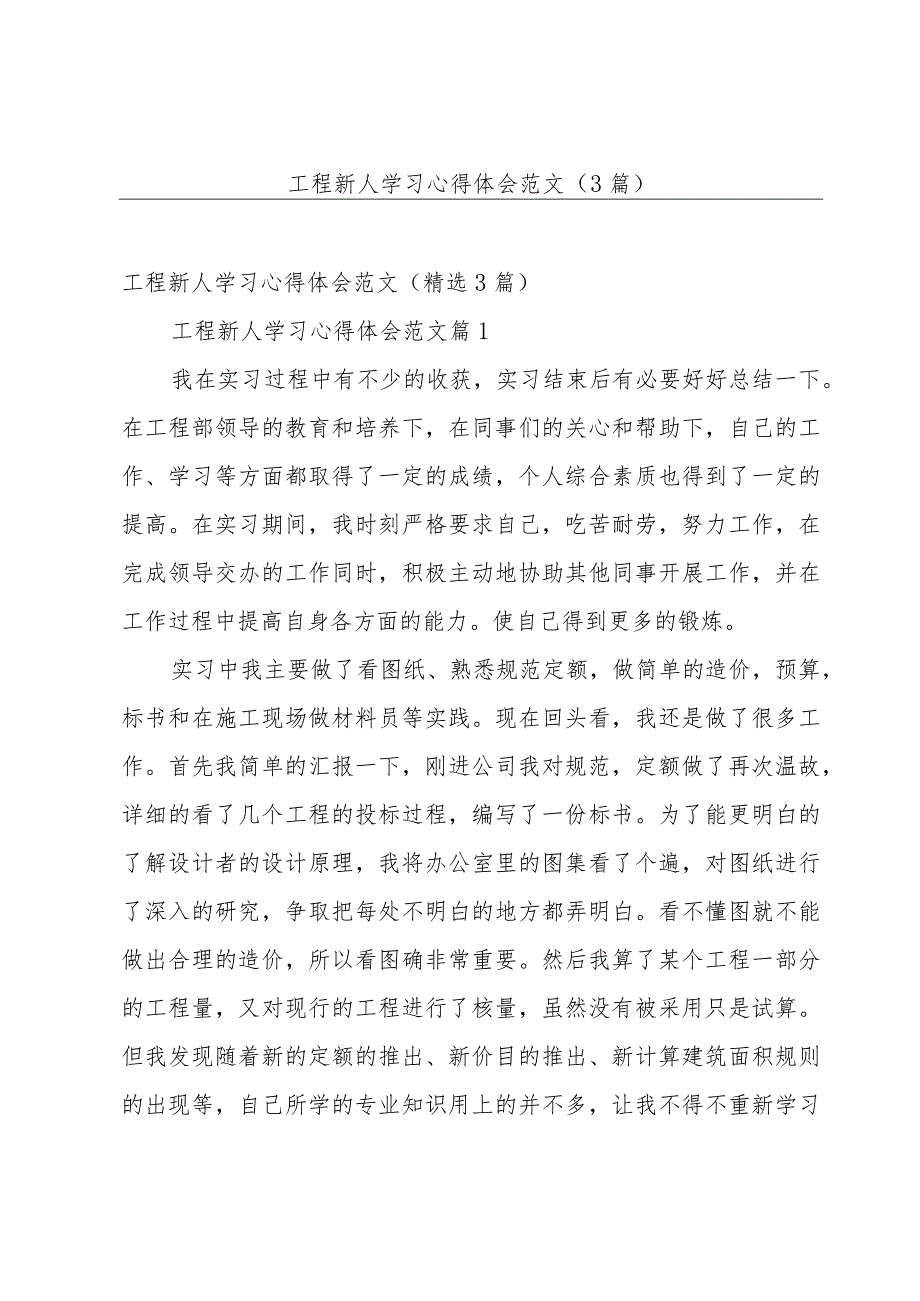 工程新人学习心得体会范文（3 篇）
工程新人学习心得体会范文（精选 3 篇）
工程新人学习心得体会范文篇 1
我在实习过程中有不少的收获，实习结束后有必要好好总结一下。
在工程部领导的教育和培养下，在同事们的关心和帮助下，自己的工
作、学习等方面都取得了一定的成绩，个人综合素质也得到了一定的
提高。在实习期间，我时刻严格要求自己，吃苦耐劳，努力工作，在
完成领导交办的工作同时，积极主动地协助其他同事开展工作，并在
工作过程中提高自身各方面的能力。使自己得到更多的锻炼。
实习中我主要做了看图纸、熟悉规范定额，做简单的造价，预算，
标书和在施工现场做材料员等实践。现在回头看，我还是做了很多工
作。首先我简单的汇报一下，刚进公司我对规范，定额做了再次温故，
详细的看了几个工程的投标过程，编写了一份标书。为了能更明白的
了解设计者的设计原理，我将办公室里的图集看了个遍，对图纸进行
了深入的研究，争取把每处不明白的地方都弄明白。看不懂图就不能
做出合理的造价，所以看图确非常重要。然后我算了某个工程一部分
的工程量，又对现行的工程进行了核量，虽然没有被采用只是试算。
但我发现随着新的定额的推出、新价目的推出、新计算建筑面积规则
的出现等，自己所学的专业知识用上的并不多，让我不得不重新学习